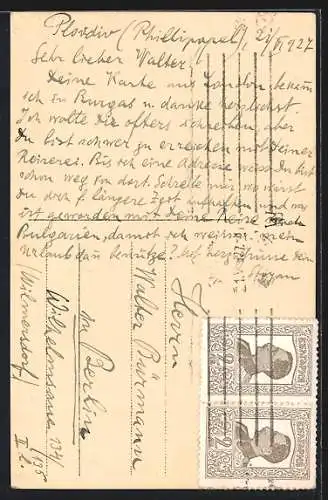 Plovdiv (Phillipopel), 21/ 1927
Sehr lieber Walter,
Deine Karte aus London bekam
ich in Burgas u danke herzlichst.
Ich wollte dir öfters schreiben, aber
Du bist schwer zu erreichen mit Deiner
Reiserei. Bis ich eine Adresse weiss Du bist
schon weg von dort. Schreibe mir, wo wirst
du dich f. längere Zeit aufhalten und was
ist geworden mit Deine Reise nach
Bulgarien, damit ich meinen
Urlaub dan benütze?
Herrn
Walter Bürmann
in Berlin
Wilhelmsaue 134/
/Wilmersdorf/